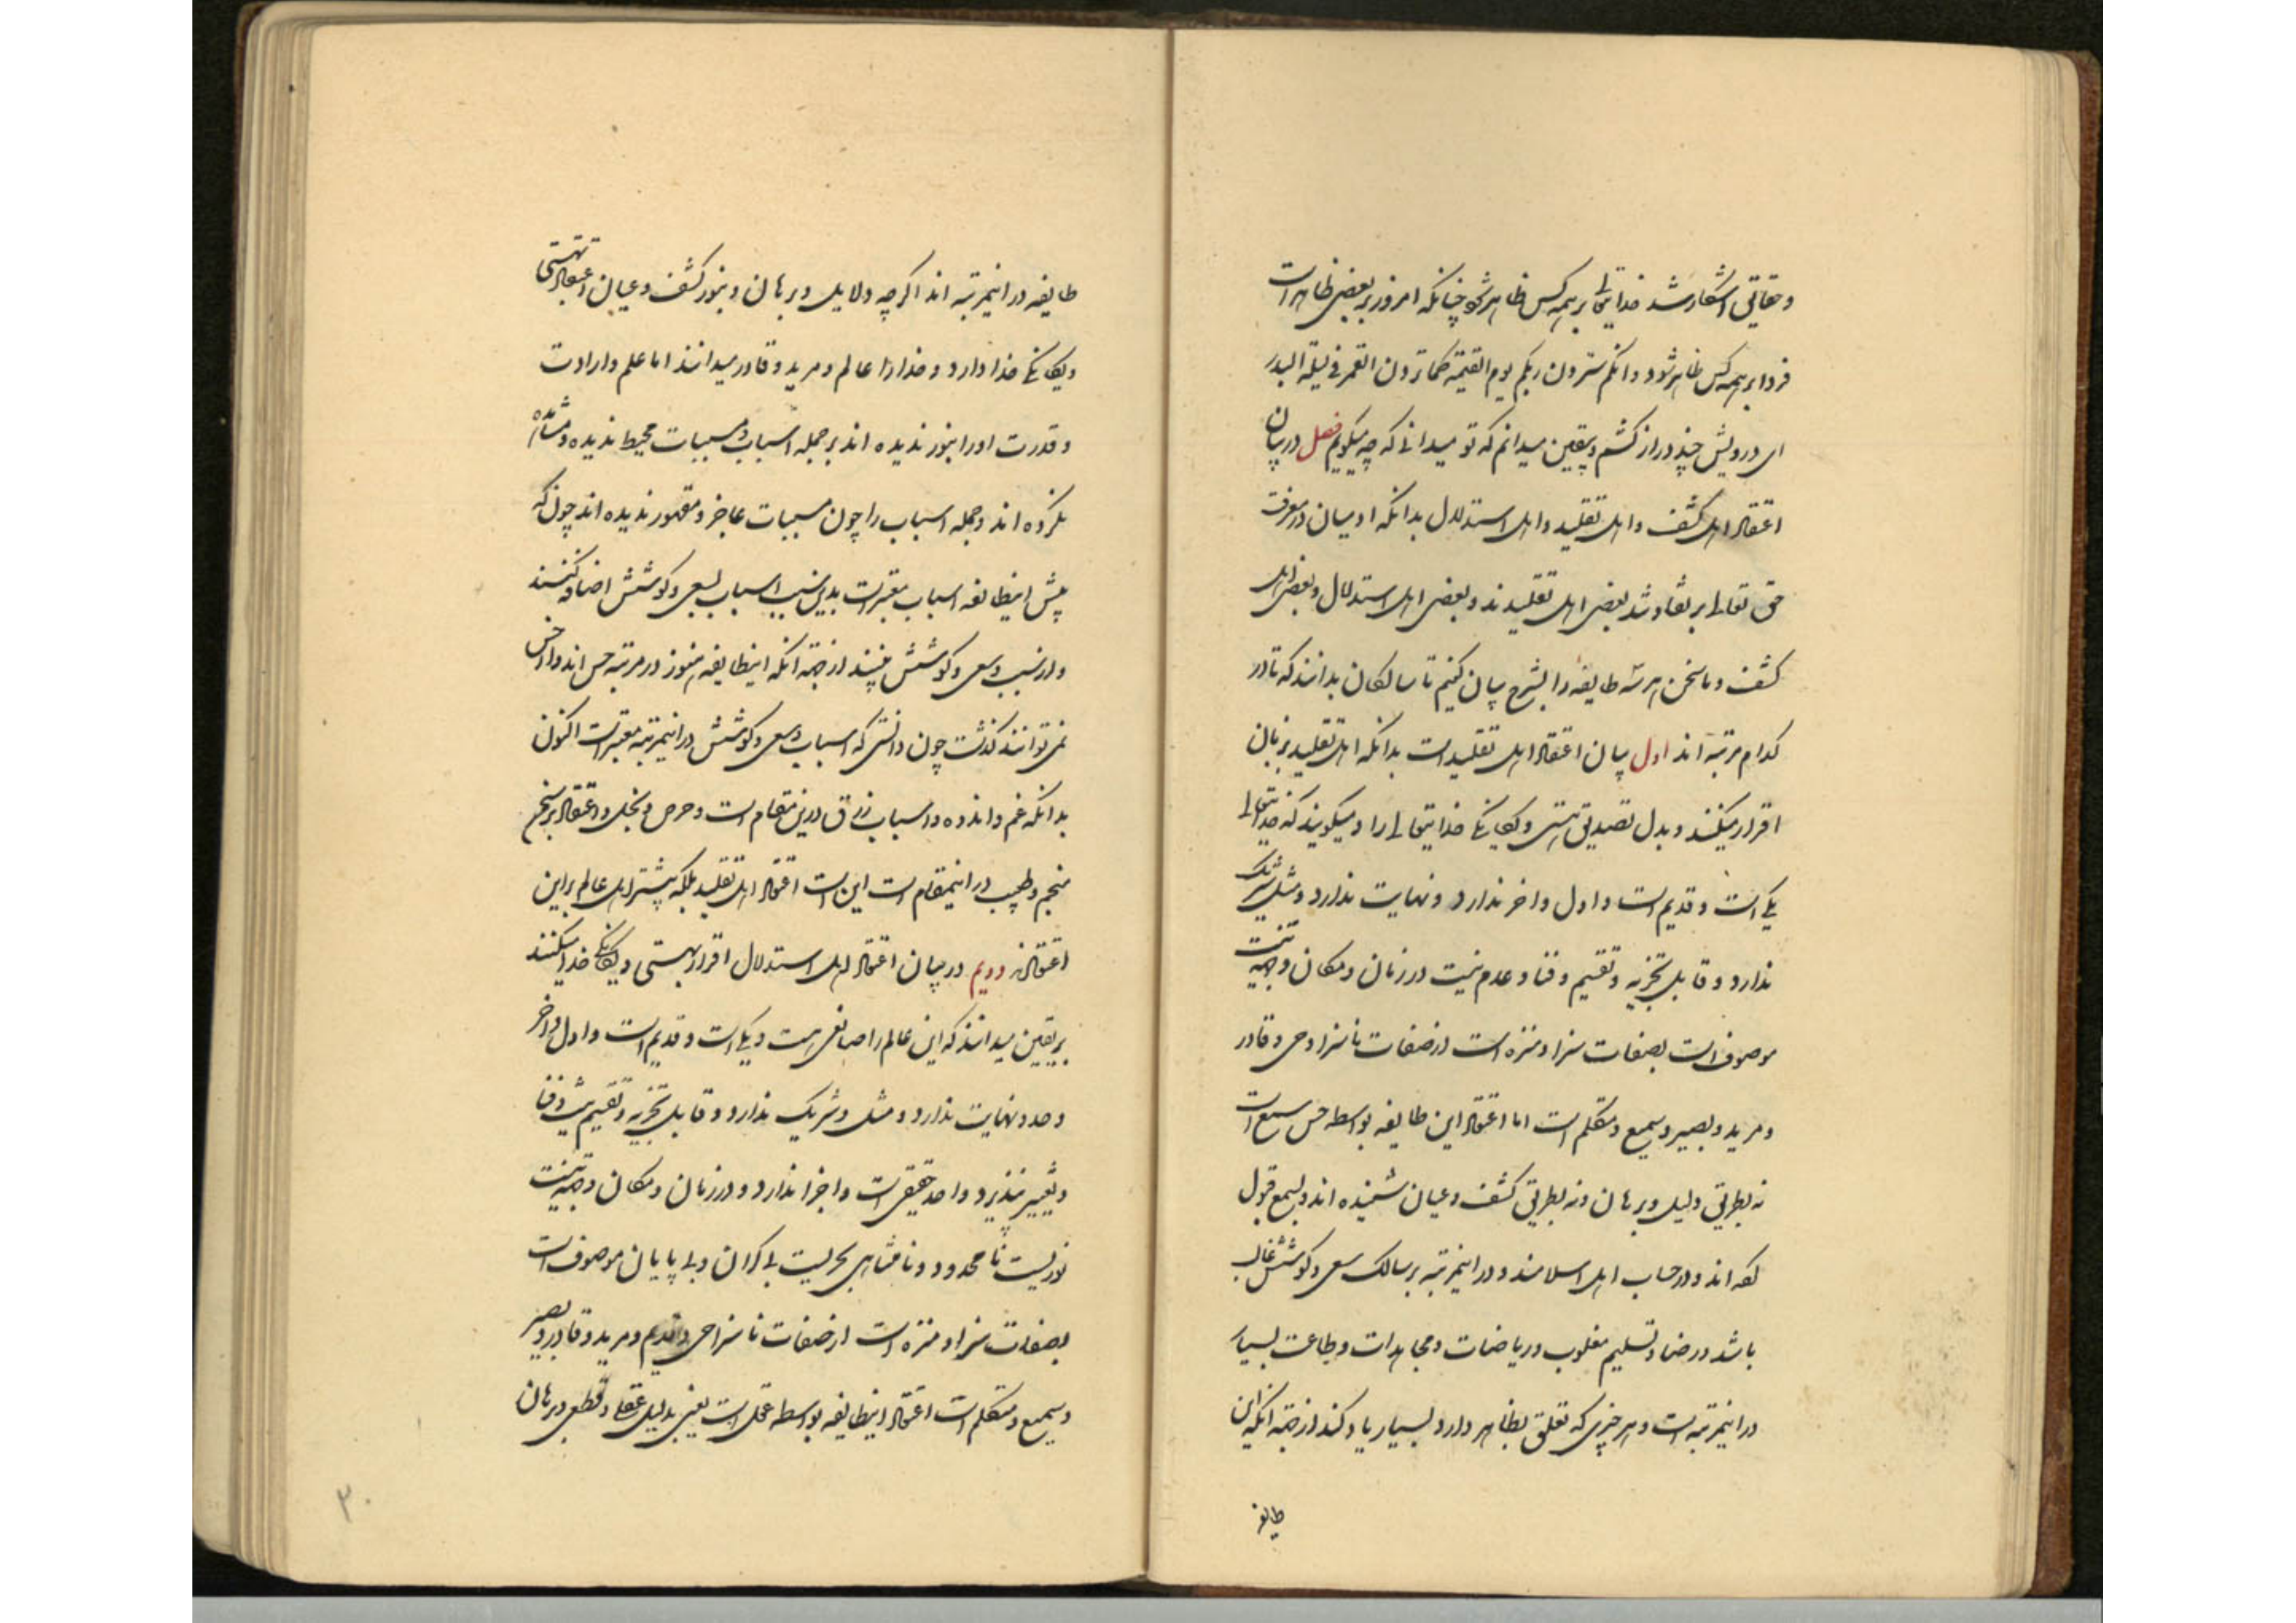 و حقایق آشکار شد خدایتعالی بر همه کس ظاهر شود چنانکه امروز بر بعضی ظاهر است
فردا بر همه کس ظاهر شود و انکم سترون ربکم یوم القیمة کما ترون القمر فی لیلة البدر
ای درویش چند دراز کشم و بیقین میدانم که تو میدانی که چه میگویم فصل در بیان
اعتقاد اهل کشف و اهل تقلید و اهل استدلال بدانکه ادمیان در معرفت
حق تعالی بر تفاوتند بعضی اهل تقلیدند و بعضی اهل استدلال و بعضی اهل
کشف و ما سخن هر سه طایفه را بشرح بیان کنیم تا سالکان بدانند که تا در
کدام مرتبه اند اول بیان اعتقاد اهل تقلید است بدانکه اهل تقلید بزبان
اقرار میکنند و بدل تصدیق هستی و یگانگی خدایتعالی را و میگویند که خدایتعالی
یکی است و قدیم است و اول و اخر ندارد و نهایت ندارد و مثل و شریک
ندارد و قابل تجزیه و تقسیم و فنا و عدم نیست در زمان و مکان و جهة نیست
موصوف است بصفات سزا و منزه است از صفات ناسزا و حی و قادر
و مرید و بصیر و سمیع و متکلم است اما اعتقاد این طایفه بواسطه حس سمع است
نه بطریق دلیل و برهان و نه بطریق کشف و عیان شنیده اند و بسمع قبول
کرده اند و در حساب اهل اسلامند و در اینمرتبه بر سالک سعی و کوشش غالب
باشد و رضا و تسلیم مغلوب و ریاضات و مجاهدات و طاعت بسیار
در اینمرتبه است و هر چیزی که تعلق بظاهر دارد بسیار یاد کند از جهة انکه این
طایفه
طایفه در اینمرتبه اند اگر چه دلایل و برهان و بنور کشف و عیان اعتقاد بهستی
و یگانگی خدا دارد و خدا را عالم و مرید و قادر میدانند اما علم و ارادت
و قدرت او را بنور ندیده اند بر جمله اسباب و مسببات محیط ندیده و مشاهده
نکرده اند و جمله اسباب را چون مسببات عاجز و مقهور ندیده اند چون که
پیش اینطایفه اسباب معتبر است بدین سبب اسباب بسعی و کوشش اضافه کنند
و از سبب و سعی و کوشش بینند از جهة انکه اینطایفه هنوز در مرتبه حس اند و از حس
نمی توانند گذشت چون دانستی که اسباب و سعی و کوشش در اینمرتبه معتبر است اکنون
بدانکه غم و اندوه و اسباب رزق درین مقام است و حرص و بخل و اعتقاد بر سخن
منجم و طبیب در اینمقام است این است اعتقاد اهل تقلید بلکه بیشتر اهل عالم بر این
اعتقادند دویم در بیان اعتقاد اهل استدلال اقرار بهستی و یگانگی خدا میکنند
بریقین میدانند که این عالم را صانعی هست و یکی است و قدیم است و اول و اخر
و حد و نهایت ندارد و مثل و شریک ندارد و قابل تجزیه و تقسیم نیست و فنا
و تغییر نپذیرد واحد حقیقی است و اجزا ندارد و در زمان و مکان و جهة نیست
نوریست نامحدود و نامتناهی بحریست بی کران و بی پایان موصوف است
بصفات سزا و منزه است از صفات ناسزا حی و قدیم و مرید و قادر و بصیر
و سمیع و متکلم است اعتقاد اینطایفه بواسطه عقل است یعنی بدلیل عقلی و قطعی و برهان
۲۰